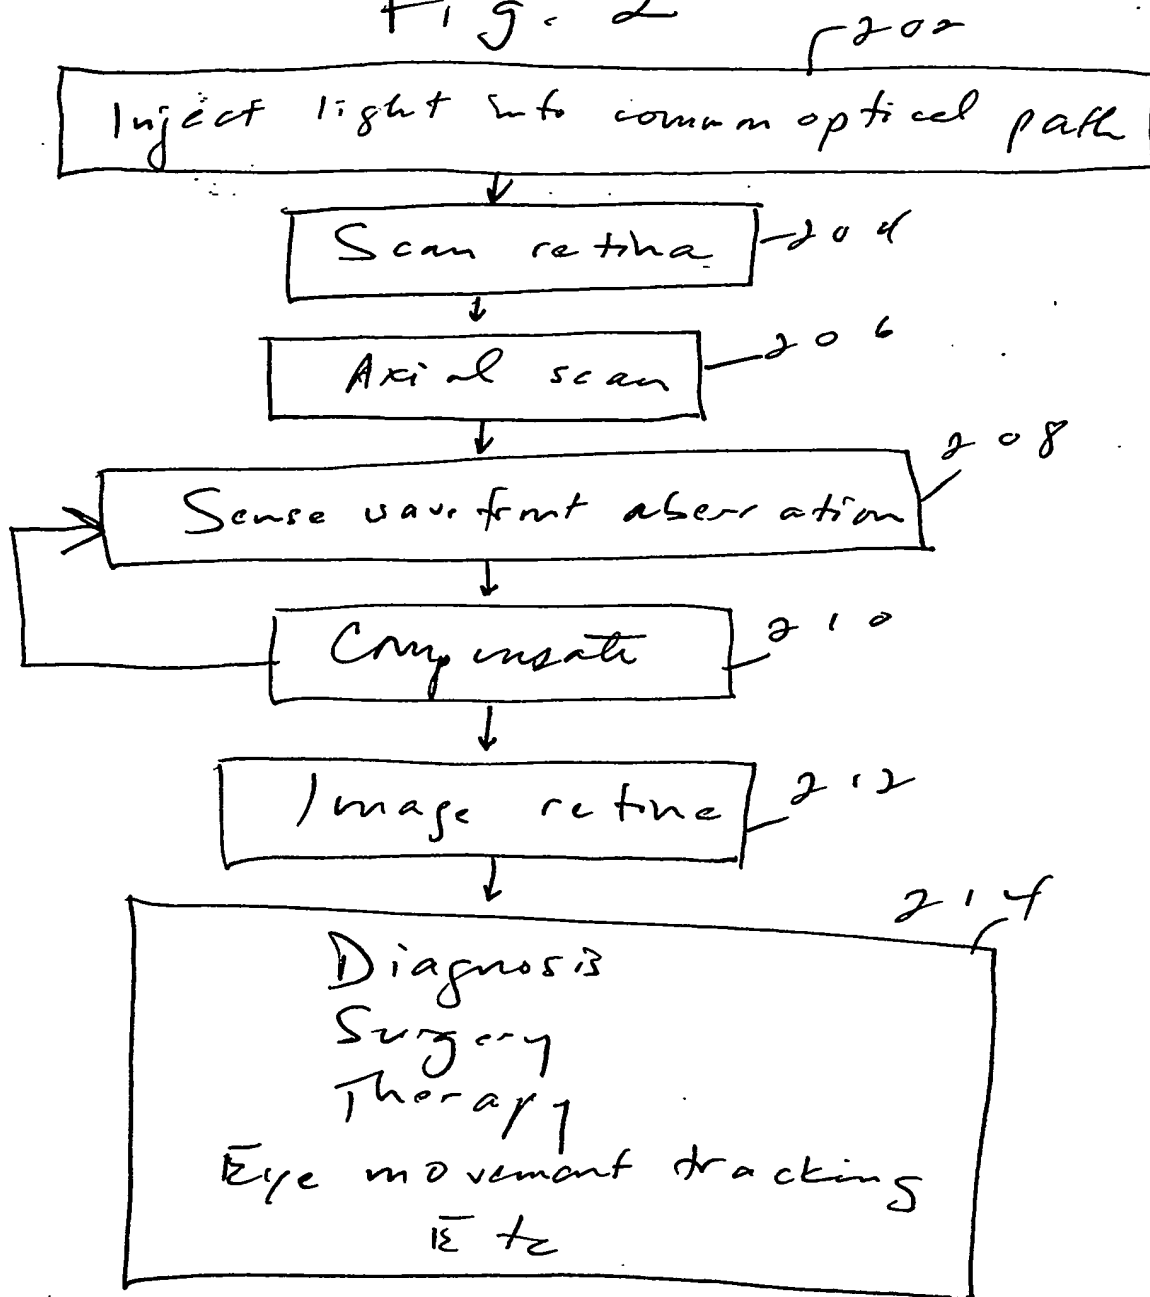 Fig. 2
202
Inject light into common optical path
Scan retina
204
Axial scan
206
208
Sense wavefront aberration
Compensate
210
Image retina
212
214
Diagnosis
Surgery
Therapy
Eye movement tracking
Etc